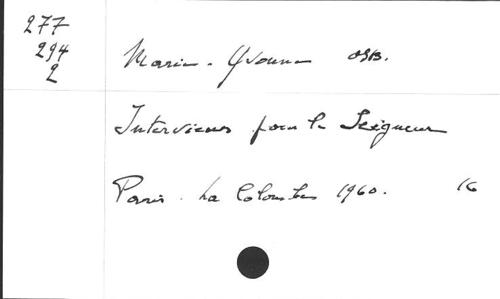 277
294
2
Marie-Yvonne OSB.
Interviews pour le Seigneur
Paris. La Colombe 1960. 16